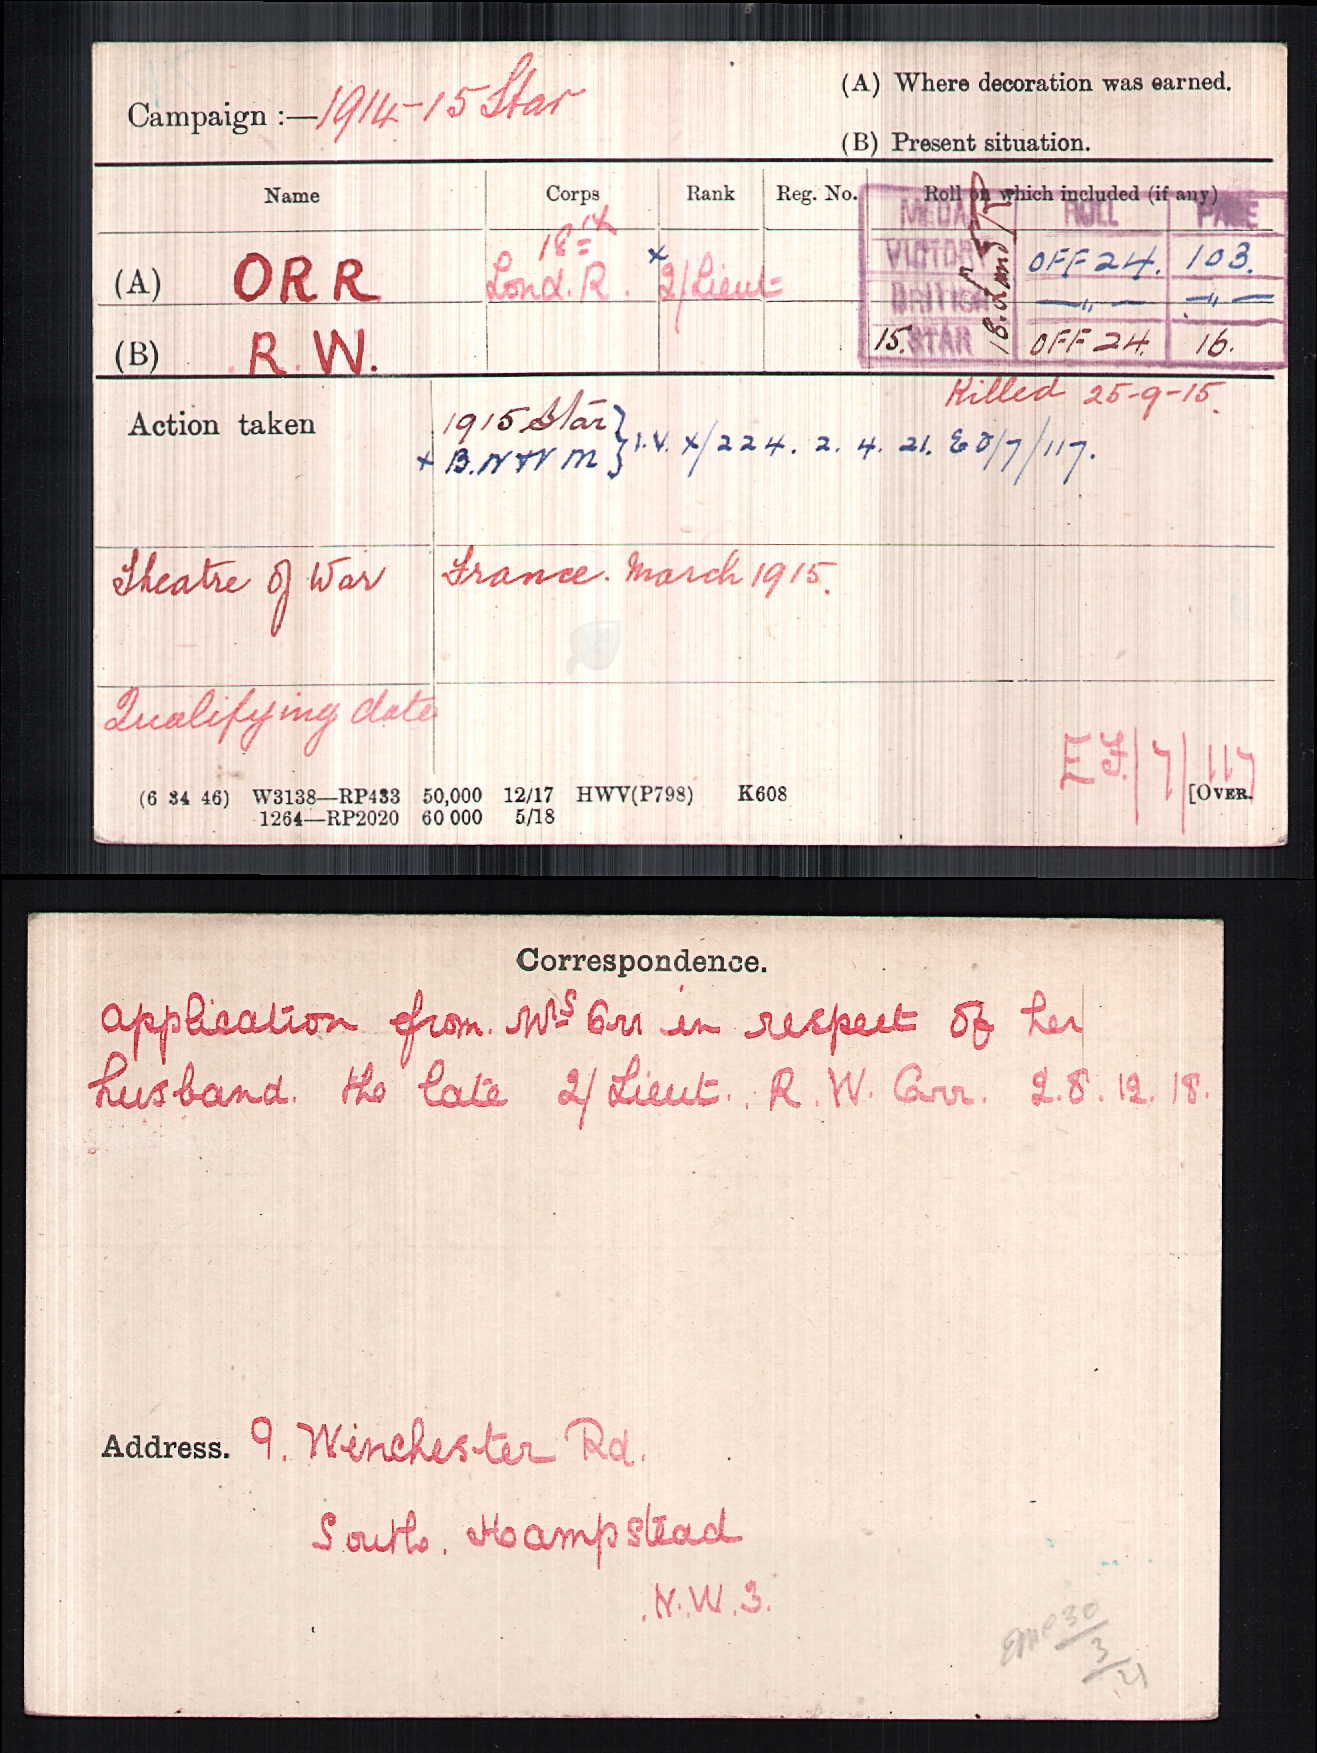 Campaign :— 1914-15 Star
(A) Where decoration was earned.
(B) Present situation.
Name Corps Rank Reg. No. Roll on which included (if any)
MEDAL ROLL PAGE
(A) ORR 18th Lond. R. x 2/Lieut= VICTORY OFF 24. 103.
BRITISH —„— —„—
(B) R. W. 15. STAR OFF 24. 16.
18. Lond R
Killed 25-9-15.
Action taken 1915 Star } I.V. x/224. 2. 4. 21. E F/7/117.
x B.W & V M
Theatre of War France. March 1915.
Qualifying date
E F/7/117
(6 34 46) W3138—RP433 50,000 12/17 HWV(P798) K608 [OVER.
1264—RP2020 60 000 5/18
Correspondence.
Application from. Mrs Orr in respect of her
husband. the late 2/Lieut. R. W. Orr. 28. 12. 18.
Address. 9. Winchester Rd.
South. Hampstead
N.W.3.
30/3/21